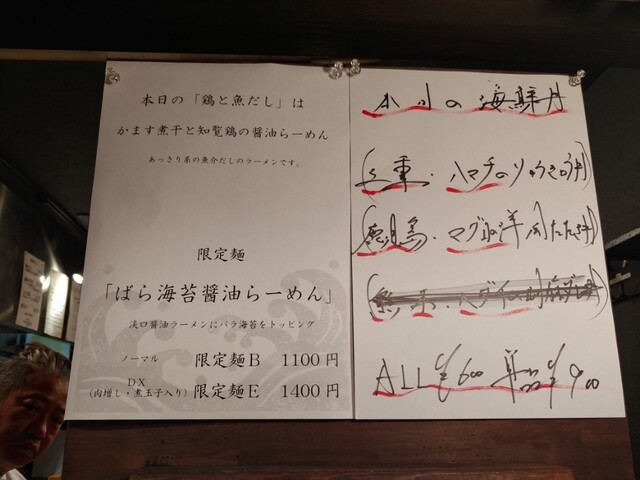 本日の「鶏と魚だし」は
かます煮干と知覧鶏の醤油らーめん
あっさり系の魚介だしのラーメンです。
限定麺
「ばら海苔醤油らーめん」
淡口醤油ラーメンにバラ海苔をトッピング
ノーマル 限定麺B 1100円
DX
(肉増し・煮玉子入り) 限定麺E 1400円
本日の海鮮丼
(三重・ハマチのりゅうきゅう丼)
(鹿児島・マグロ
ALL ¥600 単品¥900